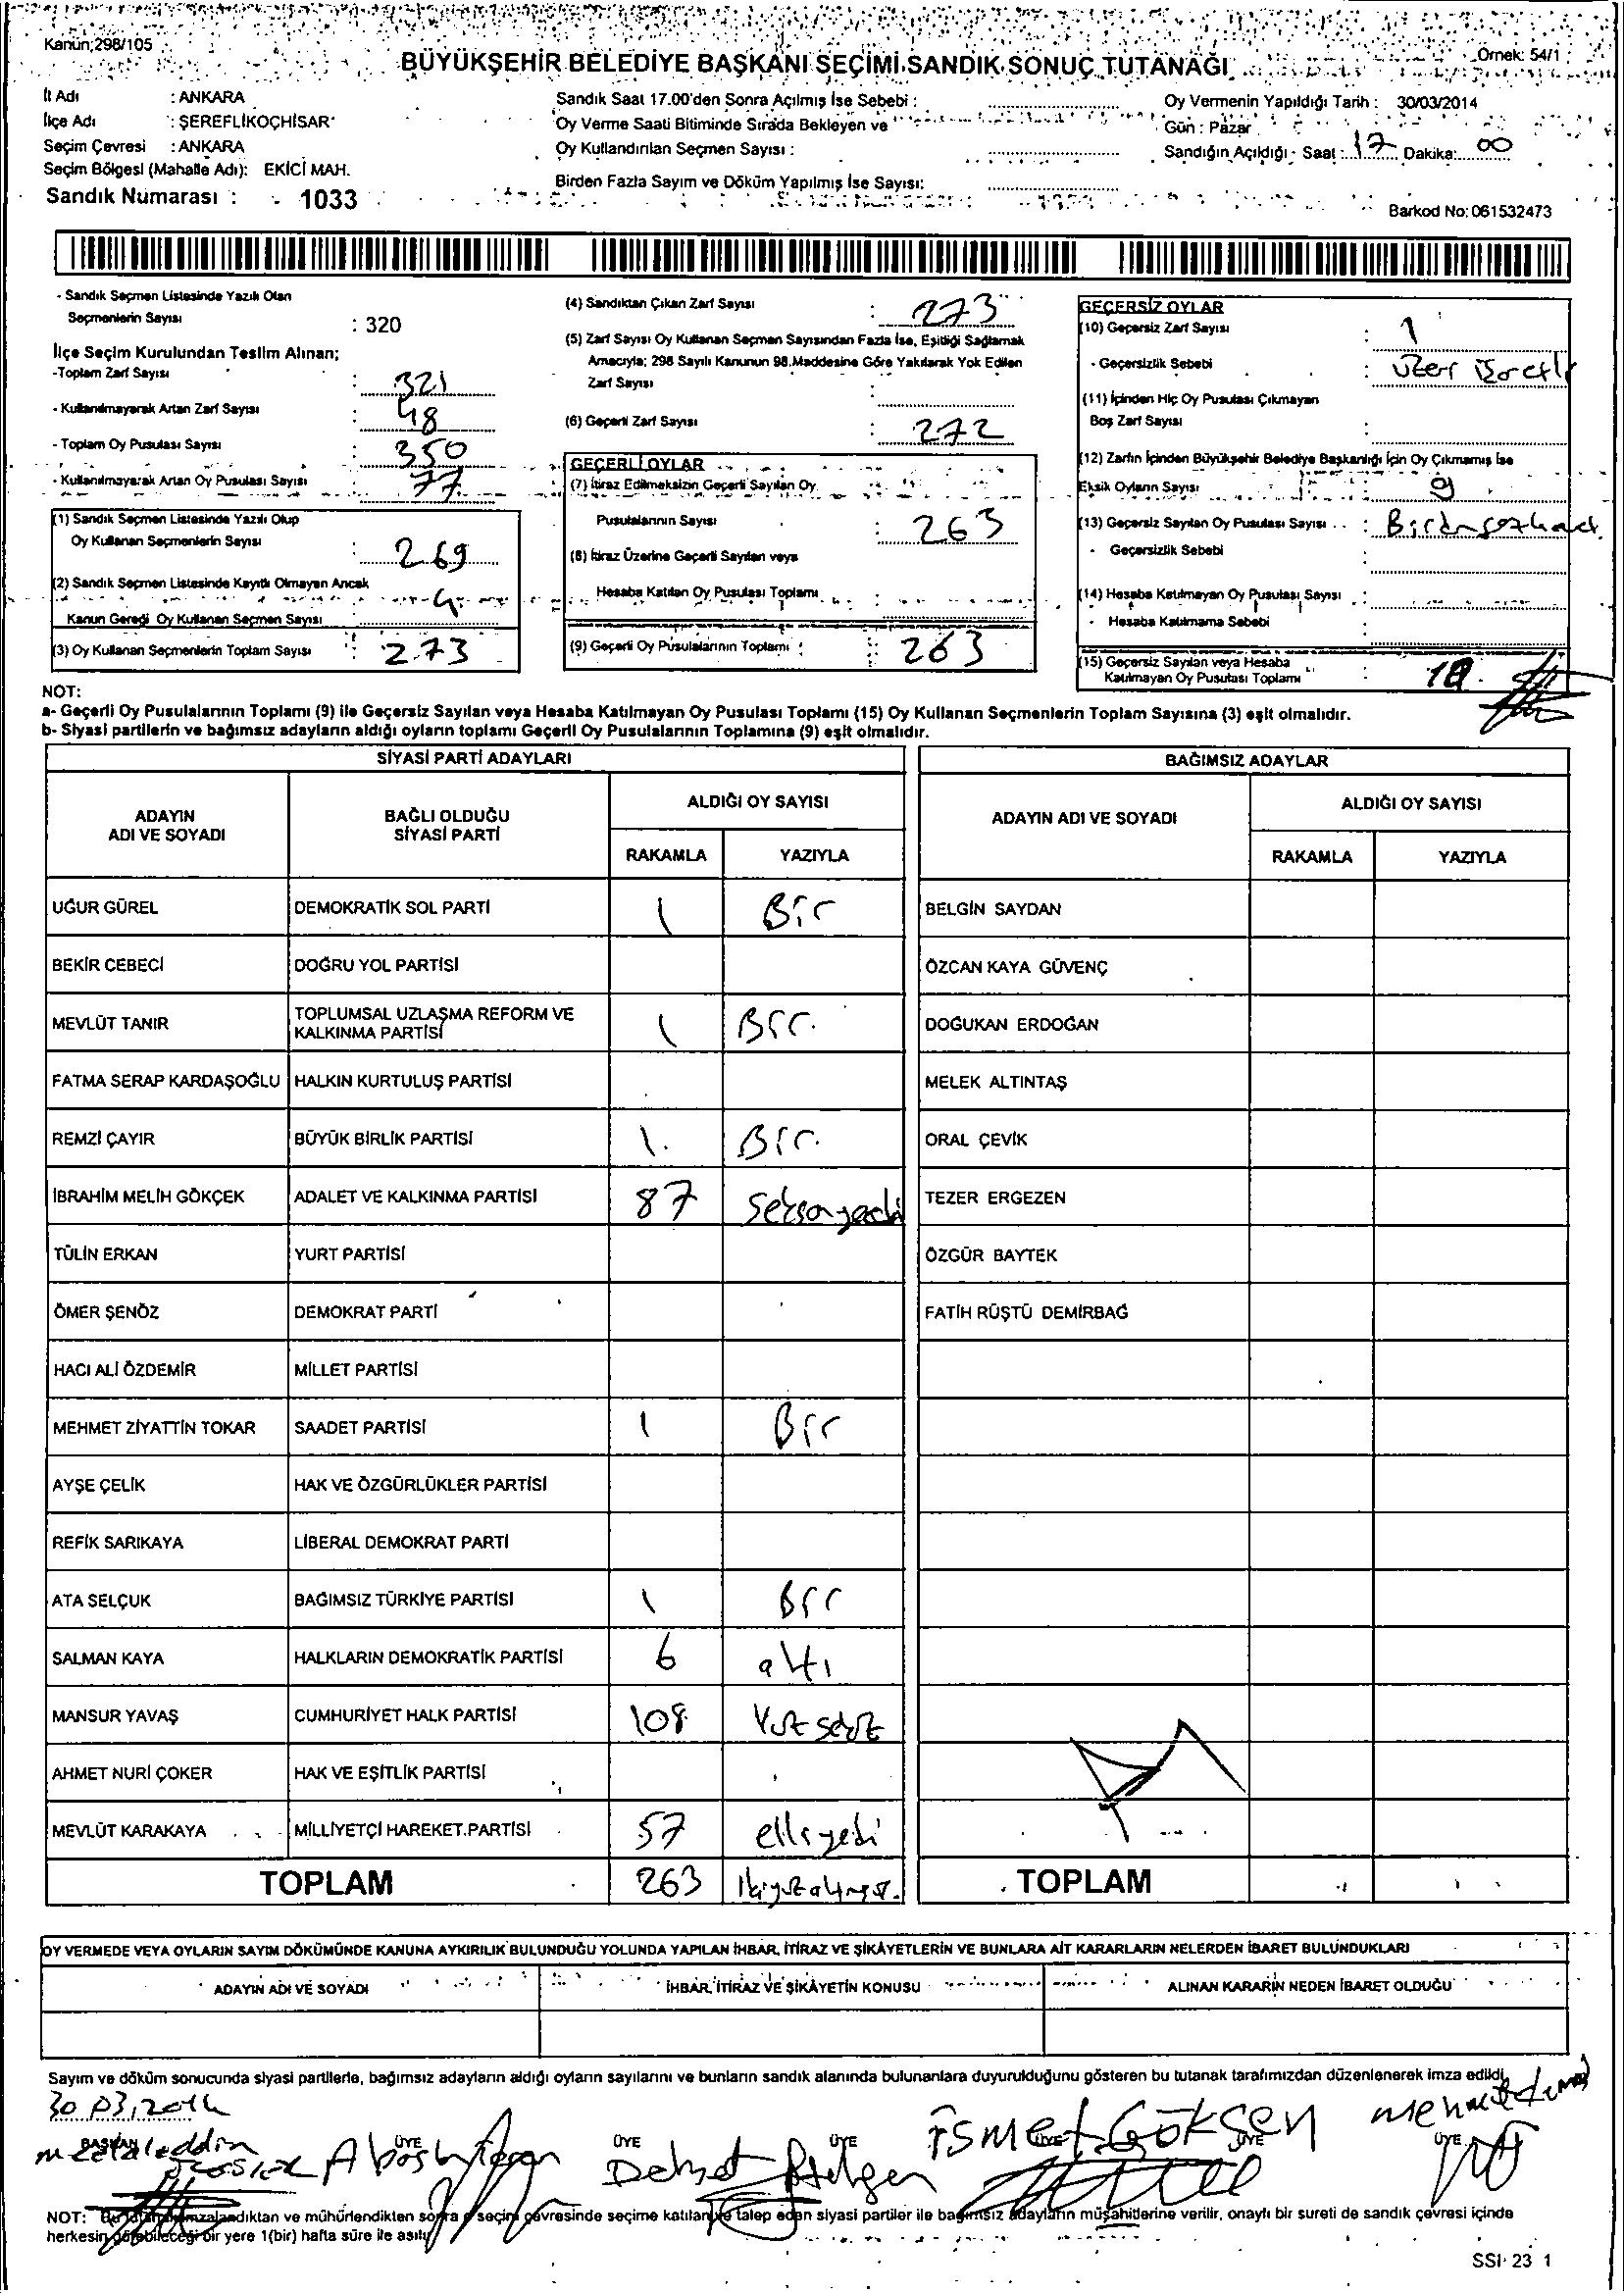 Kanun;298/105
Örnek: 54/1
BÜYÜKŞEHİR BELEDİYE BAŞKANI SEÇİMİ SANDIK SONUÇ TUTANAĞI
İl Adı : ANKARA
İlçe Adı : ŞEREFLİKOÇHİSAR
Seçim Çevresi : ANKARA
Seçim Bölgesi (Mahalle Adı): EKİCİ MAH.
Sandık Numarası : 1033
Sandık Saat 17.00'den Sonra Açılmış İse Sebebi :
Oy Verme Saati Bitiminde Sırada Bekleyen ve
Oy Kullandırılan Seçmen Sayısı :
Birden Fazla Sayım ve Döküm Yapılmış İse Sayısı:
Oy Vermenin Yapıldığı Tarih : 30/03/2014
Gün : Pazar
Sandığın Açıldığı - Saat : 17 Dakika: 00
Barkod No: 061532473
- Sandık Seçmen Listesinde Yazılı Olan
Seçmenlerin Sayısı : 320
İlçe Seçim Kurulundan Teslim Alınan;
-Toplam Zarf Sayısı : 321
- Kullanılmayarak Artan Zarf Sayısı : 48
- Toplam Oy Pusulası Sayısı : 350
- Kullanılmayarak Artan Oy Pusulası Sayısı : 77
(1) Sandık Seçmen Listesinde Yazılı Olup
Oy Kullanan Seçmenlerin Sayısı : 269
(2) Sandık Seçmen Listesinde Kayıtlı Olmayan Ancak
Kanun Gereği Oy Kullanan Seçmen Sayısı : 4
(3) Oy Kullanan Seçmenlerin Toplam Sayısı : 273
(4) Sandıktan Çıkan Zarf Sayısı : 273
(5) Zarf Sayısı Oy Kullanan Seçmen Sayısından Fazla İse, Eşitliği Sağlamak
Amacıyla; 298 Sayılı Kanunun 98.Maddesine Göre Yakılarak Yok Edilen
Zarf Sayısı :
(6) Geçerli Zarf Sayısı : 272
GEÇERLİ OYLAR
(7) İtiraz Edilmeksizin Geçerli Sayılan Oy
Pusulalarının Sayısı : 263
(8) İtiraz Üzerine Geçerli Sayılan veya
Hesaba Katılan Oy Pusulası Toplamı :
(9) Geçerli Oy Pusulalarının Toplamı : 263
GEÇERSİZ OYLAR
(10) Geçersiz Zarf Sayısı : 1
- Geçersizlik Sebebi : üzeri işaretli
(11) İçinden Hiç Oy Pusulası Çıkmayan
Boş Zarf Sayısı :
(12) Zarfın İçinden Büyükşehir Belediye Başkanlığı İçin Oy Çıkmamış İse
Eksik Oyların Sayısı : 9
(13) Geçersiz Sayılan Oy Pusulası Sayısı :
- Geçersizlik Sebebi :
(14) Hesaba Katılmayan Oy Pusulası Sayısı :
- Hesaba Katılmama Sebebi :
(15) Geçersiz Sayılan veya Hesaba
Katılmayan Oy Pusulası Toplamı : 10
NOT:
a- Geçerli Oy Pusulalarının Toplamı (9) ile Geçersiz Sayılan veya Hesaba Katılmayan Oy Pusulası Toplamı (15) Oy Kullanan Seçmenlerin Toplam Sayısına (3) eşit olmalıdır.
b- Siyasi partilerin ve bağımsız adayların aldığı oyların toplamı Geçerli Oy Pusulalarının Toplamına (9) eşit olmalıdır.
SİYASİ PARTİ ADAYLARI
ADAYIN ADI VE SOYADI
BAĞLI OLDUĞU SİYASİ PARTİ
ALDIĞI OY SAYISI
RAKAMLA YAZIYLA
UĞUR GÜREL DEMOKRATİK SOL PARTİ 1 Bir
BEKİR CEBECİ DOĞRU YOL PARTİSİ
MEVLÜT TANIR TOPLUMSAL UZLAŞMA REFORM VE KALKINMA PARTİSİ 1 Bir.
FATMA SERAP KARDAŞOĞLU HALKIN KURTULUŞ PARTİSİ
REMZİ ÇAYIR BÜYÜK BİRLİK PARTİSİ 1. Bir.
İBRAHİM MELİH GÖKÇEK ADALET VE KALKINMA PARTİSİ 87 Seksenyedi
TÜLİN ERKAN YURT PARTİSİ
ÖMER ŞENÖZ DEMOKRAT PARTİ
HACI ALİ ÖZDEMİR MİLLET PARTİSİ
MEHMET ZİYATTİN TOKAR SAADET PARTİSİ 1 Bir
AYŞE ÇELİK HAK VE ÖZGÜRLÜKLER PARTİSİ
REFİK SARIKAYA LİBERAL DEMOKRAT PARTİ
ATA SELÇUK BAĞIMSIZ TÜRKİYE PARTİSİ 1 Bir
SALMAN KAYA HALKLARIN DEMOKRATİK PARTİSİ 6 altı
MANSUR YAVAŞ CUMHURİYET HALK PARTİSİ 108 Yüz sekiz
AHMET NURİ ÇOKER HAK VE EŞİTLİK PARTİSİ
MEVLÜT KARAKAYA MİLLİYETÇİ HAREKET PARTİSİ 57 elliyedi
TOPLAM 263
BAĞIMSIZ ADAYLAR
ADAYIN ADI VE SOYADI
ALDIĞI OY SAYISI
RAKAMLA YAZIYLA
BELGİN SAYDAN
ÖZCAN KAYA GÜVENÇ
DOĞUKAN ERDOĞAN
MELEK ALTINTAŞ
ORAL ÇEVİK
TEZER ERGEZEN
ÖZGÜR BAYTEK
FATİH RÜŞTÜ DEMİRBAĞ
TOPLAM
OY VERMEDE VEYA OYLARIN SAYIM DÖKÜMÜNDE KANUNA AYKIRILIK BULUNDUĞU YOLUNDA YAPILAN İHBAR, İTİRAZ VE ŞİKÂYETLERİN VE BUNLARA AİT KARARLARIN NELERDEN İBARET BULUNDUKLARI
ADAYIN ADI VE SOYADI
İHBAR, İTİRAZ VE ŞİKÂYETİN KONUSU
ALINAN KARARIN NEDEN İBARET OLDUĞU
Sayım ve döküm sonucunda siyasi partilerle, bağımsız adayların aldığı oyların sayılarını ve bunların sandık alanında bulunanlara duyurulduğunu gösteren bu tutanak tarafımızdan düzenlenerek imza edildi.
30.03.2014
BAŞKAN ÜYE ÜYE ÜYE ÜYE ÜYE ÜYE
İsmet GÖKŞEN
NOT: Bu tutanak imzalandıktan ve mühürlendikten sonra o seçim çevresinde seçime katılan ve talep eden siyasi partiler ile bağımsız adayların müşahitlerine verilir, onaylı bir sureti de sandık çevresi içinde
herkesin görebileceği bir yere 1(bir) hafta süre ile asılır
SSI 23 1